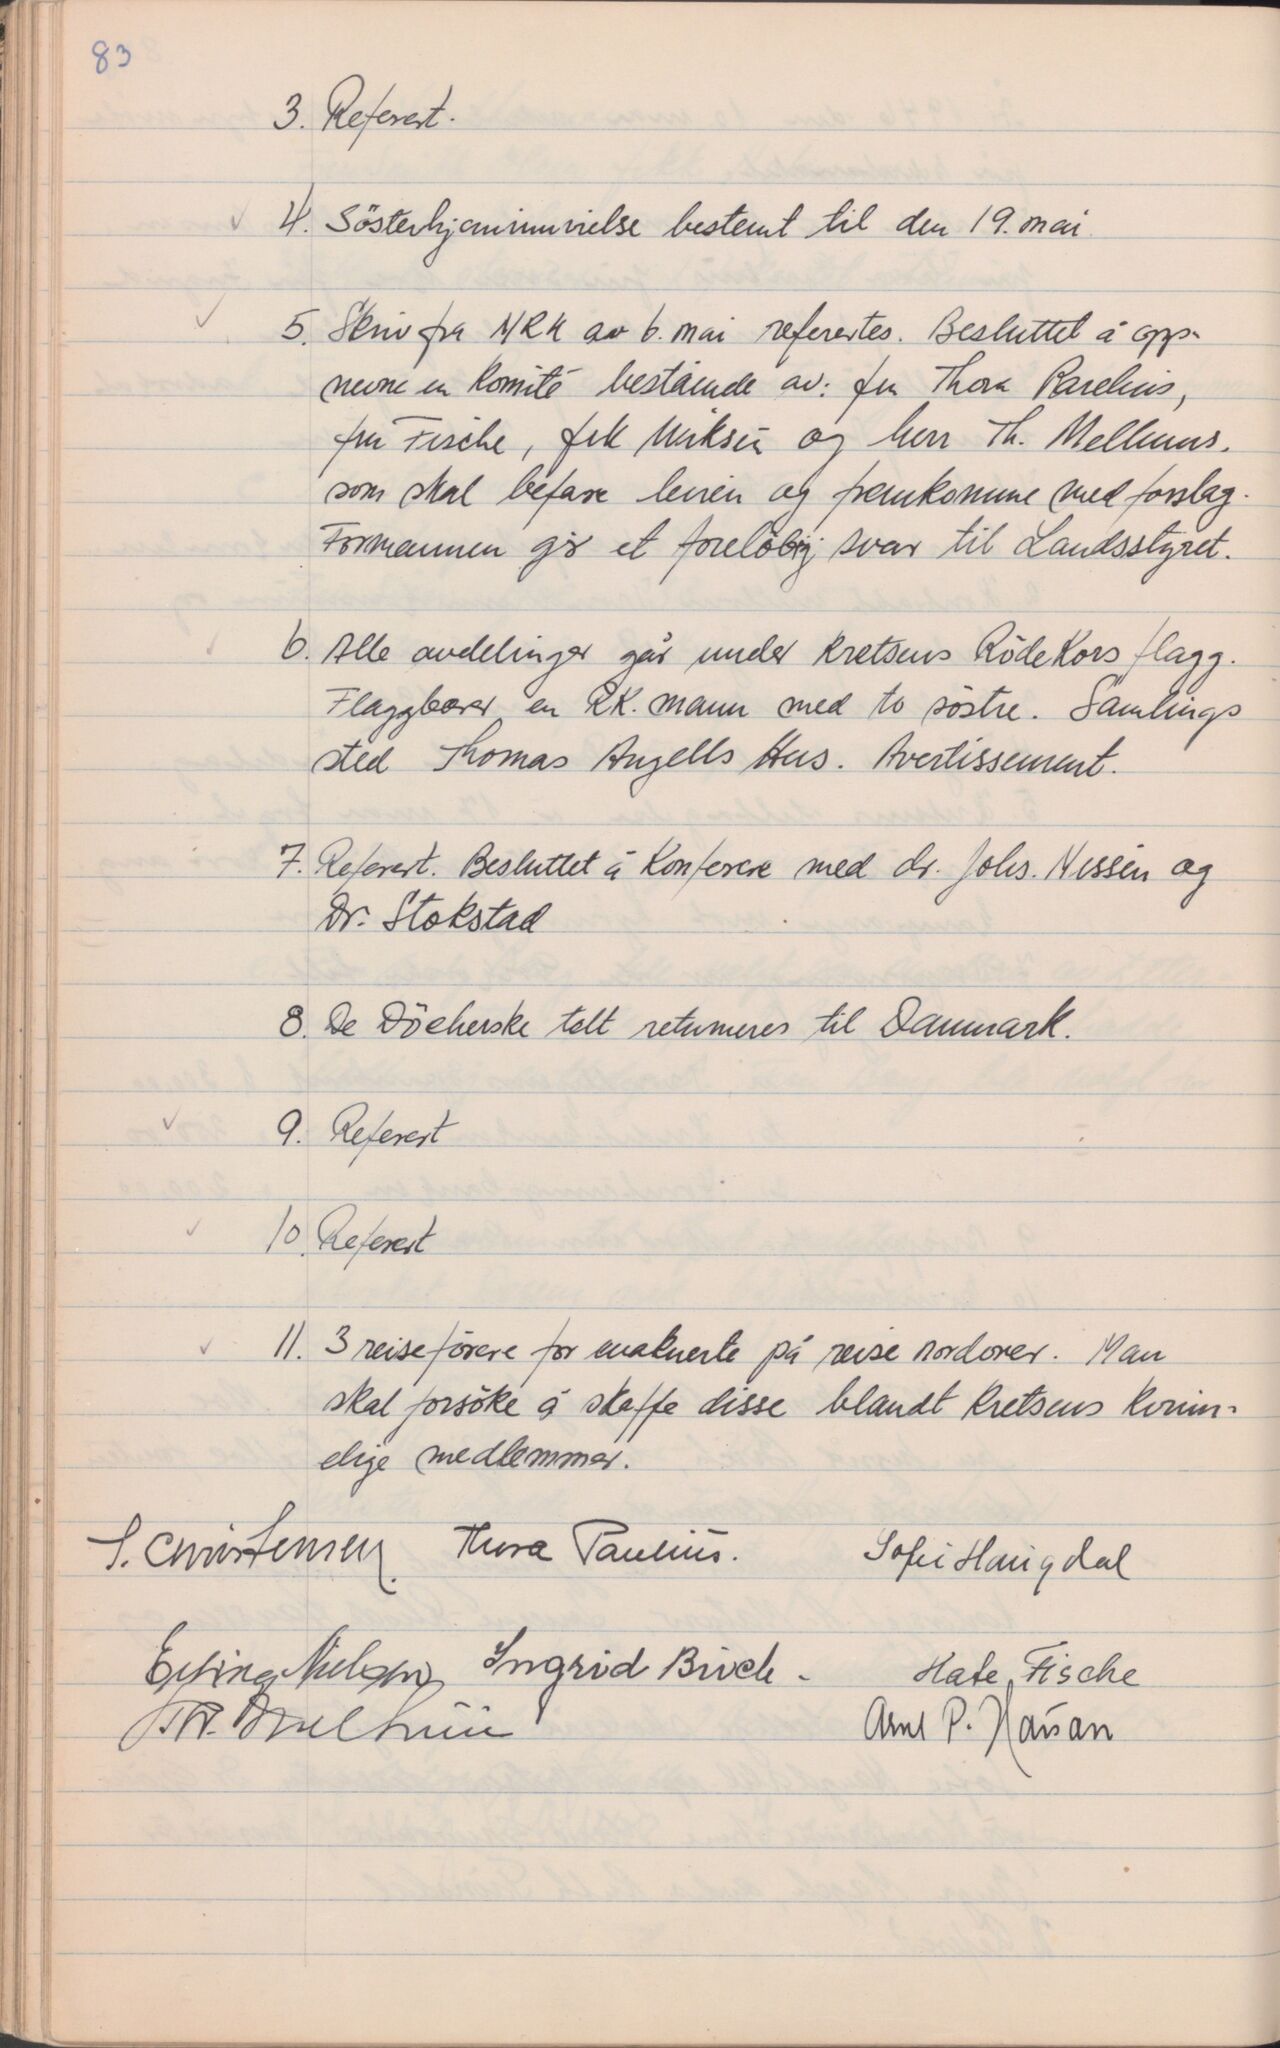 83
3. Referert.
4. Søsterhjeminnvielse bestemt til den 19. mai
5. Skriv fra NRK av 6. mai refereertes. Besluttet å opp-
nevne en komité bestående av: fru Thora Parelius,
fru Fische, frk og herr Th. Mellhuus.
som skal befare leiren og fremkomme med forslag.
Formannen gir et foreløbig svar til Landsstyret.
6. Alle avdelinger går under kretsens Röde Kors flagg.
Flaggbærer en RK. mann med to søstre. Samlings
sted Thomas Angells Hus. Avertissement.
7. Referert. Besluttet å konferere med dr. Johs. Nissén og
Dr. Stokstad
8. De Döcherske telt returneres til Danmark.
9. Referert
10. Referert
11. 3 reiseförere for evakuerte på reise nordover. Man
skal forsöke å skaffe disse blandt kretsens kvinn-
elige medlemmer.
S. Christensen. Thora Parelius. Sofie Haugdal
Erling Nielsen Ingrid Birch - Kate Fische
Th. Mellhuus Arne P.